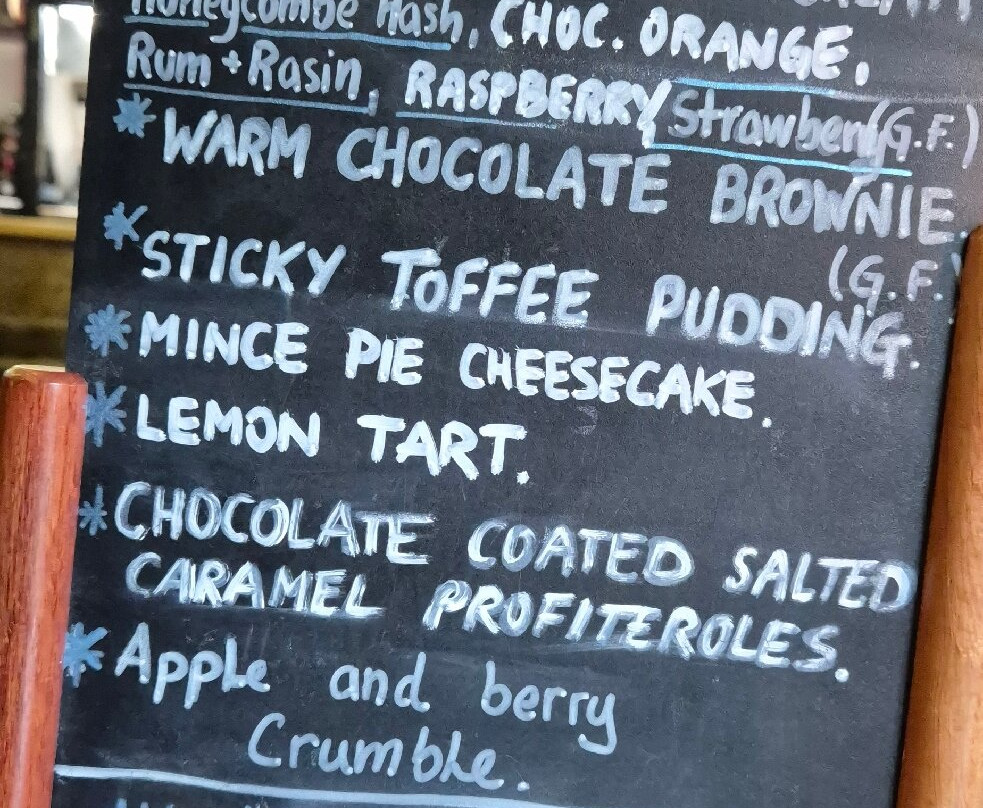 Honeycombe Mash, CHOC. ORANGE,
Rum + Rasin, RASPBERRY, Strawberry (G.F.)
* WARM CHOCOLATE BROWNIE.
(G.F.
* STICKY TOFFEE PUDDING.
* MINCE PIE CHEESECAKE.
* LEMON TART.
* CHOCOLATE COATED SALTED
CARAMEL PROFITEROLES.
* Apple and berry
Crumble.